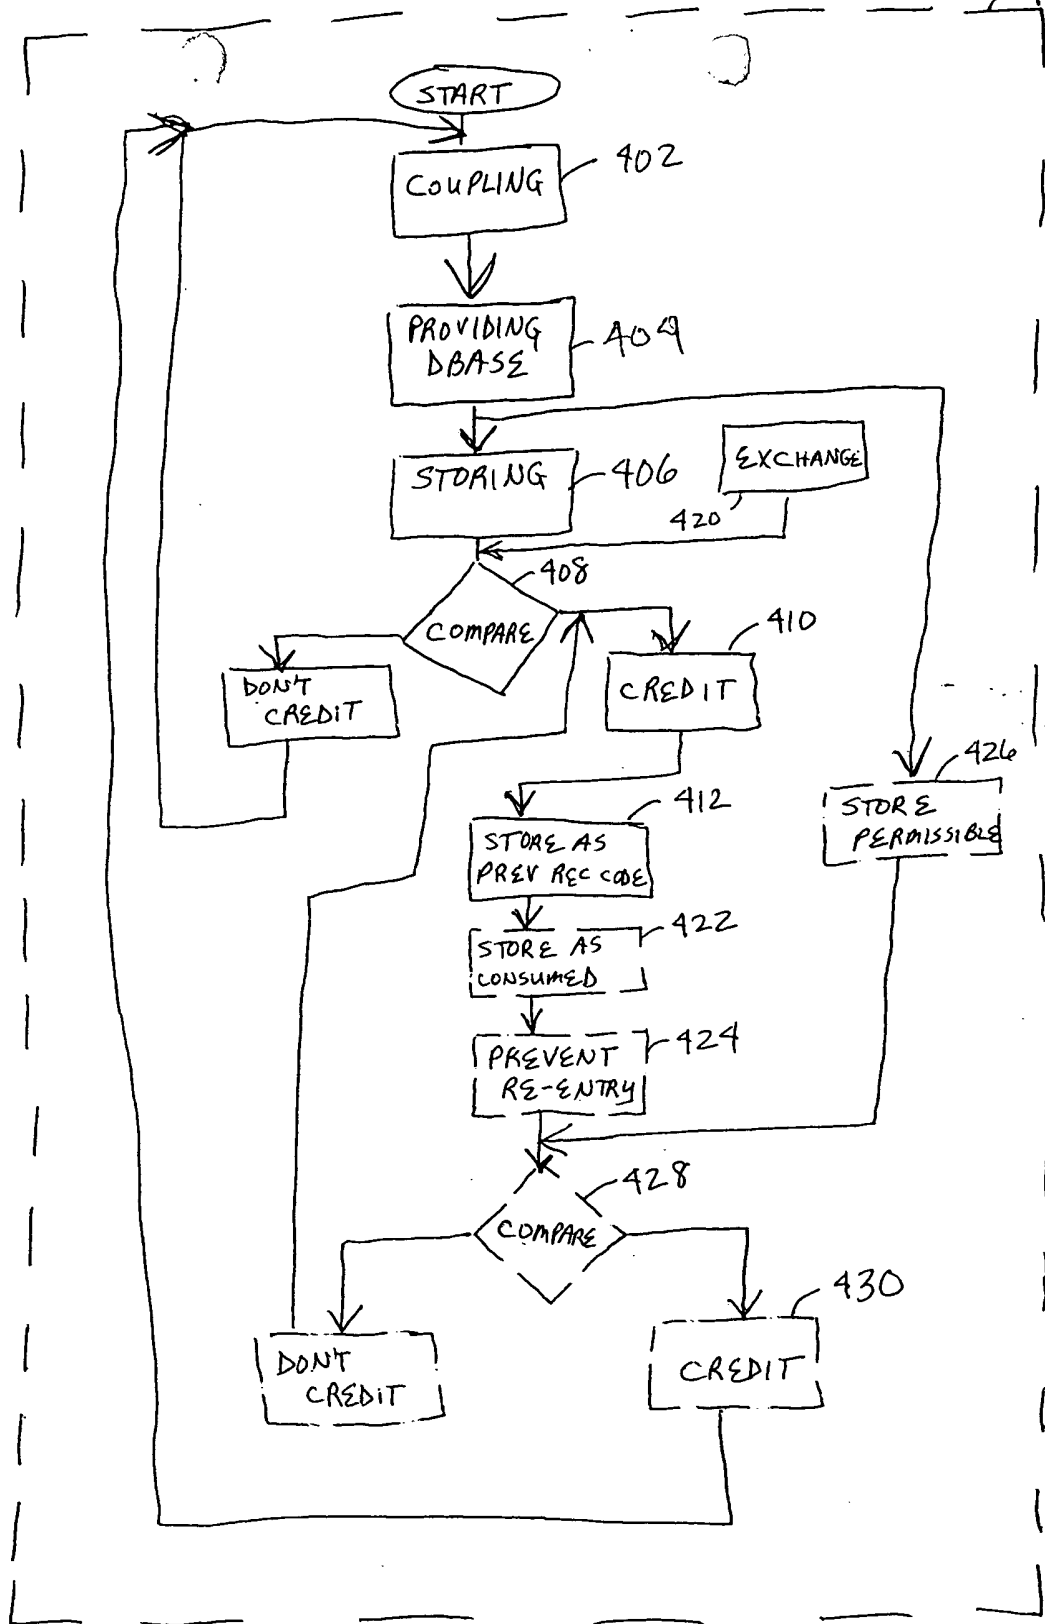 START
COUPLING
402
PROVIDING
DBASE
404
STORING
406
EXCHANGE
420
408
COMPARE
410
DON'T
CREDIT
CREDIT
426
STORE
PERMISSIBLE
412
STORE AS
PREV REC CODE
422
STORE AS
CONSUMED
424
PREVENT
RE-ENTRY
428
COMPARE
430
DON'T
CREDIT
CREDIT